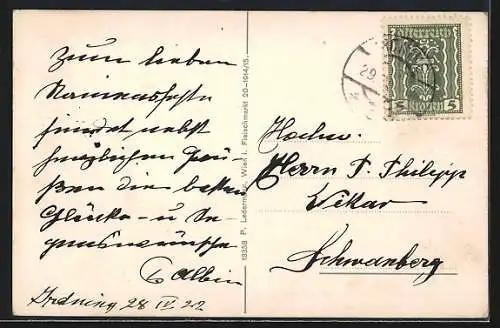 Zum lieben
Namensfeste
sendet nebst
herzlichen Grü-
ßen die besten
Glücks- u Se-
genswünsche
Albin
Irdning 28 IV 22
13358 P. Ledermann, Wien I. Fleischmarkt 20-1914/15.
Österreich
5 Kronen 5
29.
Hochw.
Herrn P. Philipp
Vikar
Schwanberg